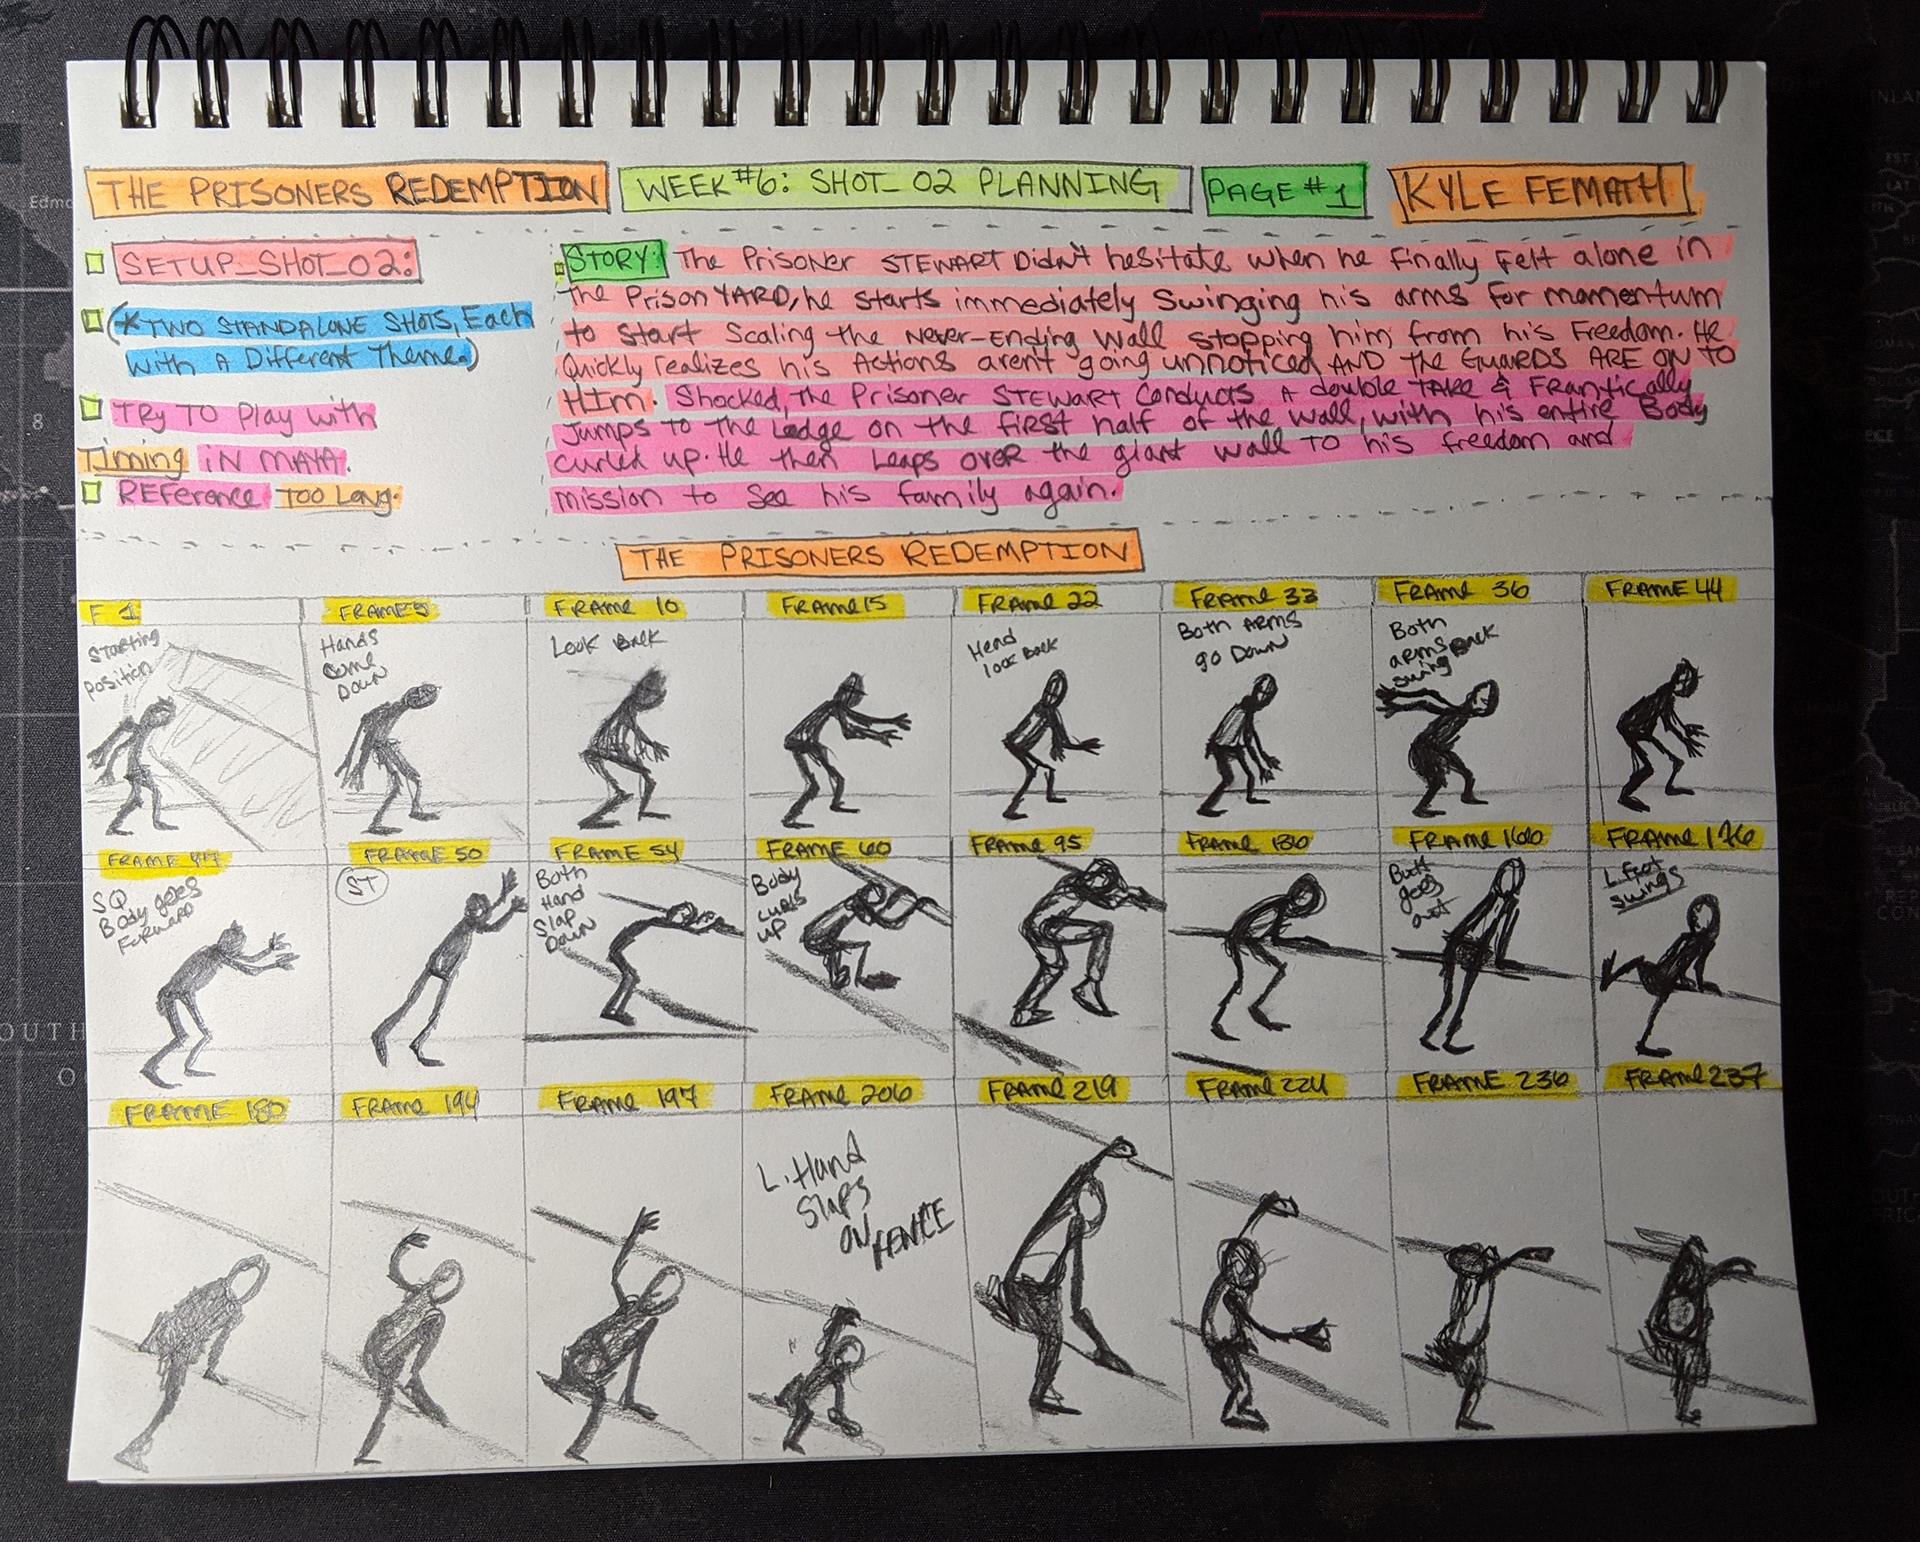 THE PRISONERS REDEMPTION
WEEK #6: SHOT_02 PLANNING
PAGE #1
KYLE FEMATH
SETUP_SHOT_02:
(*TWO STANDALONE SHOTS, Each
with A Different Theme.)
TRY TO Play with
Timing IN MAYA.
REFerence TOO LONG.
STORY: The Prisoner STEWART Didn't hesitate when he finally felt alone in
the Prison YARD, he starts immediately swinging his arms for momentum
to start Scaling the Never-Ending Wall stopping him from his Freedom. He
Quickly realizes his Actions aren't going unnoticed AND the GUARDS ARE ON TO
HIM. Shocked, the Prisoner STEWART Conducts A double TAKE & Frantically
Jumps to the Ledge on the first half of the wall, with his entire Body
curled up. He then Leaps over the giant wall TO his freedom and
mission to see his family again.
THE PRISONERS REDEMPTION
F 1
FRAME 5
FRAME 10
FRAME 15
FRAME 22
FRAME 33
FRAME 36
FRAME 44
Starting
position
Hands
come
DOWN
Look Back
Head
look Back
Both ARMS
go DOWN
Both
arms Back
swing
FRAME 47
FRAME 50
FRAME 54
FRAME 60
FRAME 95
FRAME 130
FRAME 160
FRAME 176
SQ
Body goes
Forward
ST
Both
Hand
Slap
Down
Body
curls
up
Butt
goes
out
L. Foot
swings
FRAME 180
FRAME 194
FRAME 197
FRAME 206
FRAME 219
FRAME 224
FRAME 236
FRAME 237
L. Hand
Slaps
ON
FENCE